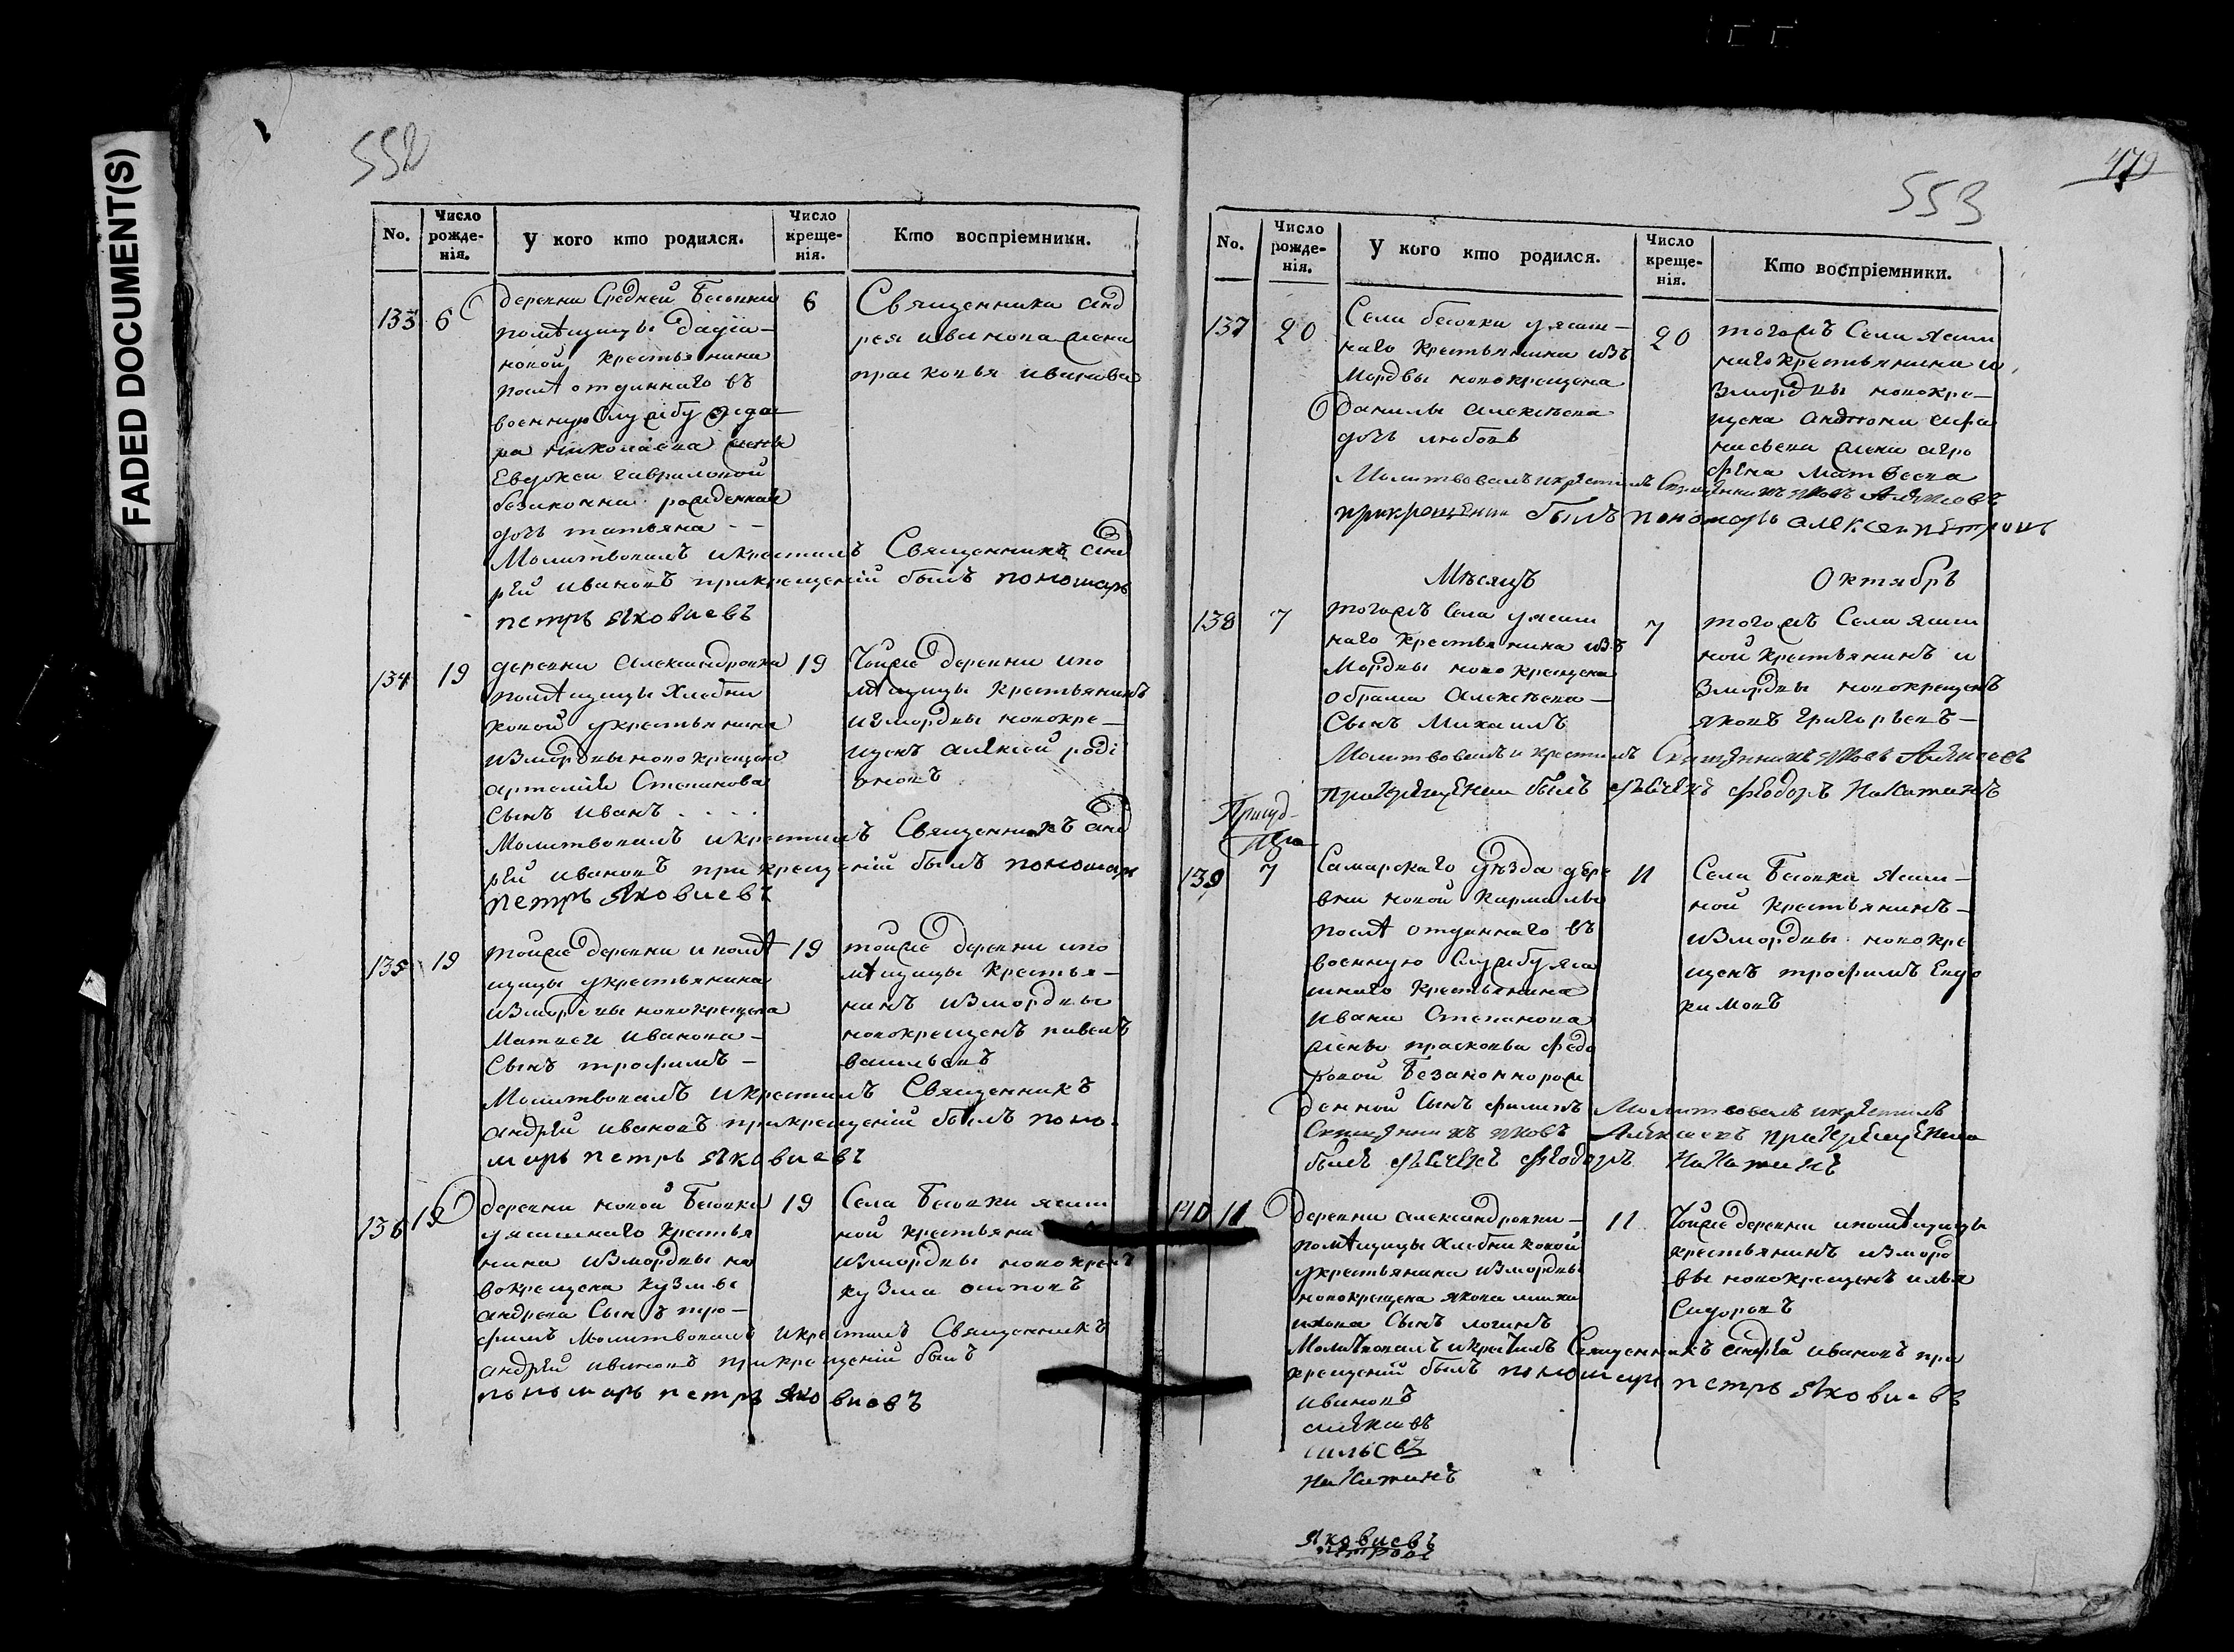 FADED DOCUMENT(S)
552
No.
Число рожде-нія.
У кого кто родился.
Число креще-нія.
Кто воспріемники.
133
6
деревни Средней Бесовки
помѣщицы
новой крестьянина
послѣ отданнаго въ
военную Службу Ѳедо
ра Николаева жены
Евдокеи гавриловой
безаконно рожденная
дочь татьяна
6
Священника Анд
рея иванова жена
прасковья иванова
Молитвовалъ икрестилъ Священникъ Анд
рѣй ивановъ прикрещеніи былъ пономарь
петръ Яковлевъ
134
19
деревни Александровки
помѣщицы Хлебни
ковой укрестьянина
измордвы новокрещена
артемия Степанова
Сынъ иванъ
19
Тойже деревни ипо
мѣщицы крестьянинъ
измордвы новокре
щенъ алѣксѣй роді
оновъ
Молитвовалъ икрестилъ Священникъ Анд
рѣй ивановъ при крещеніи былъ пономарь
петръ Яковлевъ
135
19
тойже деревни и помѣ
щицы укрестьянина
измордвы новокрещена
Матвея Иванова
Сынъ трофимъ
19
тойже деревни ипо
мѣщицы крестья
нинъ измордвы
новокрещенъ павелъ
васильевъ
Молитвовалъ икрестилъ Священникъ
андрѣй ивановъ прикрещеніи былъ поно
марь петръ Яковлевъ
136
19
деревни новой Бесовки
уясашнаго крестья
нина измордвы но
вокрещена кузмы
андреева Сынъ тро
фимъ Молитвовалъ икрестилъ Священникъ
андрѣй ивановъ прикрещеніи былъ
пономарь петръ Яковлевъ
19
Села Бесовки ясаш
ной крестьяни
измордвы новокрещ
кузма осиповъ
553
479
No.
Число рожде-нія.
У кого кто родился.
Число креще-нія.
Кто воспріемники.
137
20
Села бесовки уясаш
наго крестьянина изъ
Мордвы новокрещена
Данилы алексѣева
дочь любовь
20
тогожъ Села ясаш
наго крестьянина и
змордвы новокре
щена Антона афа
насьева жена агро
фѣна Матвеева
Молитвовалъ икрѣстилъ Священникъ яковъ Алѣксѣевъ
прикрещѣнии былъ пономарь алексей петровъ
Мѣсяцъ Октябрь
138
7
тогожъ Села уясаш
наго крестьянина изъ
Мордвы новокрещена
обрама алексѣева
Сынъ Михаилъ
7
тогожъ Села ясаш
ной крестьянинъ и
змордвы новокрещенъ
яковъ григорьевъ
Молитвовалъ и крестилъ Священникъ яковъ Алѣксеевъ
прикрѣщѣнии былъ Федоръ Никитинъ
139
7
Самарскаго уѣзда дере
вни новой Кармалы
послѣ отданнаго въ
военную Службу яса
шнаго крестьянина
ивана Степанова
жены прасковьи федо
ровой Безаконнорож
денной Сынъ филипъ
11
Села Бесовки ясаш
ной крестьянинъ
измордвы новокре
щенъ трофимъ Евдо
кимовъ
Молитвовалъ икрѣстилъ
Священникъ яковъ Алексеевъ прикрѣщѣнии
былъ Федоръ Никитинъ
140
11
деревни александровки
помѣщицы Хлебниковой
укрестьянина измордвы
новокрещена якова
Сынъ логинъ
11
Тойже деревни ипомѣщицы
крестьянинъ измор
вы новокрещенъ илья
Сидоровъ
Молитвовалъ икрестилъ Священникъ Андрѣй ивановъ при
крещеніи былъ пономарь петръ Яковлевъ
ивановъ
алѣксеевъ
Никитинъ
Яковлевъ
петровъ